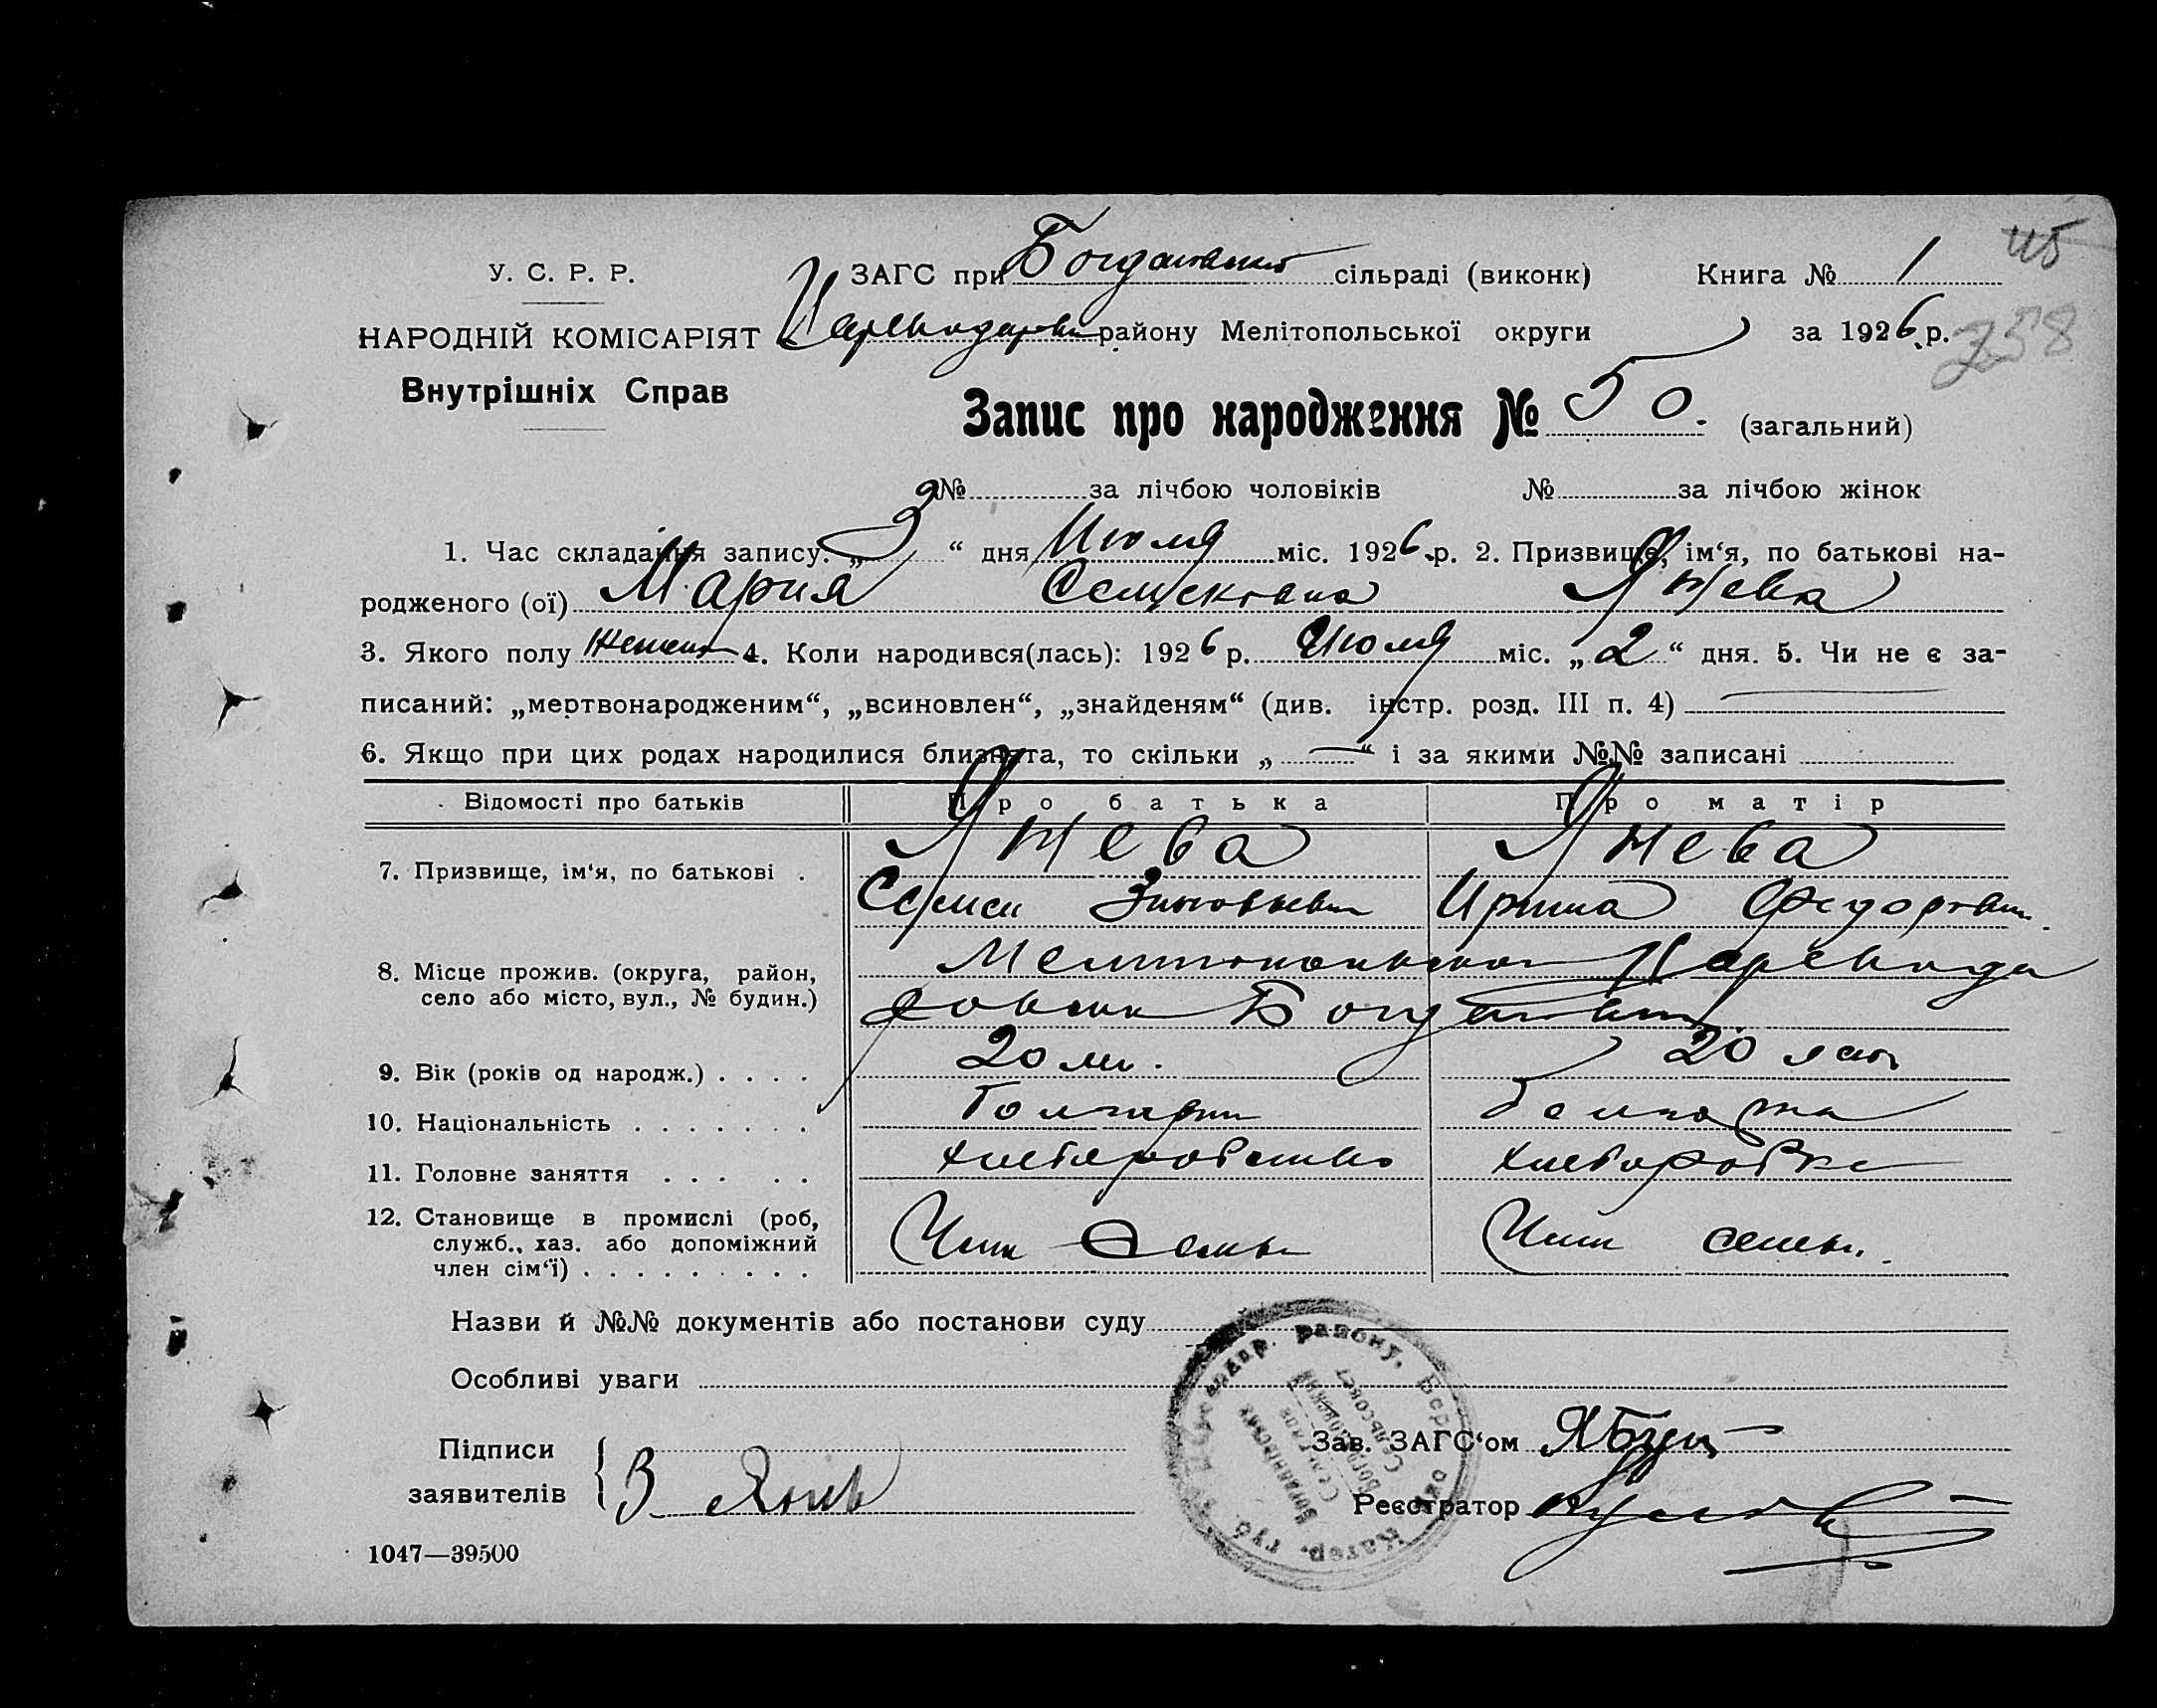 У. С. Р. Р.
НАРОДНІЙ КОМІСАРІЯТ
Внутрішніх Справ
ЗАГС при Богдановський сільраді (виконк) Книга № 1
району Мелітопольської округи за 1926 р.
115
358
Запис про народження № 50. (загальний)
№ за лічбою чоловіків № за лічбою жінок
1. Час складання запису. „3“ дня Июля міс. 1926 р. 2. Призвище, ім‘я, по батькові на-
родженого (ої) Мария Семеновна Янева
3. Якого полу женск 4. Коли народився(лась): 1926 р. Июля міс. „2“ дня. 5. Чи не є за-
писаний: „мертвонародженим“, „всиновлен“, „знайденям“ (див. інстр. розд. III п. 4)
6. Якщо при цих родах народилися близнята, то скільки „—“ і за якими №№ записані
Відомості про батьків Про батька Про матір
7. Призвище, ім‘я, по батькові . Янева Янева
Семен Зиновьевич Ирина Федоровн
8. Місце прожив. (округа, район,
село або місто, вул., № будин.)
9. Вік (років од народж.) . . . . 20 20 лет
10. Національність . . . . . . . Болгарин болгарка
11. Головне заняття . . . . . хлеборобство хлеборобка
12. Становище в промислі (роб,
служб., хаз. або допоміжний
член сім‘ї) . . . . . . . . . Член семьи Член семьи.
Назви й №№ документів або постанови суду
Особливі уваги
Підписи
заявителів
В Янев
Зав. ЗАГС‘ом
Реєстратор
району.
Катер. губ.
1047—39500